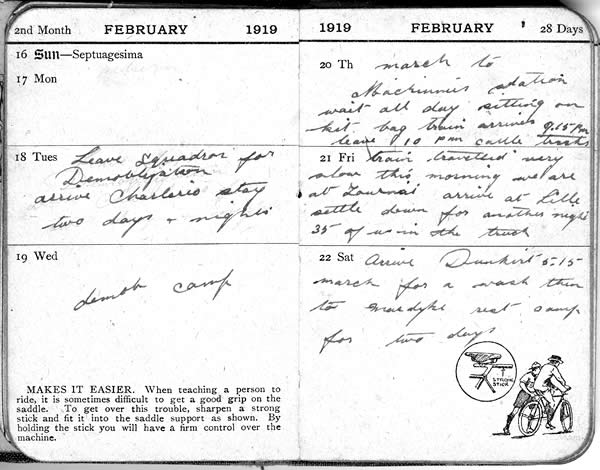 2nd Month FEBRUARY 1919
16 Sun—Septuagesima
17 Mon
18 Tues Leave Squadron for
Demobilyation
arrive Charlerio stay
two days & nights
19 Wed
demob camp
MAKES IT EASIER. When teaching a person to
ride, it is sometimes difficult to get a good grip on the
saddle. To get over this trouble, sharpen a strong
stick and fit it into the saddle support as shown. By
holding the stick you will have a firm control over the
machine.
1919 FEBRUARY 28 Days
20 Th march to
station
wait all day sitting on
kit bag train arrives 9.15 Pm
leave 10 pm cattle trucks
21 Fri train travelled very
slow this morning we are
at Tournai arrive at Lille
settle down for another night
35 of us in the truck
22 Sat Arrive Dunkirk 5.15
march for a wash then
to mardyke rest camp
for two days
STRONG
STICK